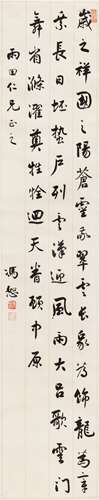 歲之祥國之陽蒼靈敬翠雲長象為飾龍為章
乘長日坯蟄戶列雲漢迎風雨大呂歌雲門
舞省滌濯奠牲牷迴天眷顧中原
雨田仁兄正之
馮恕